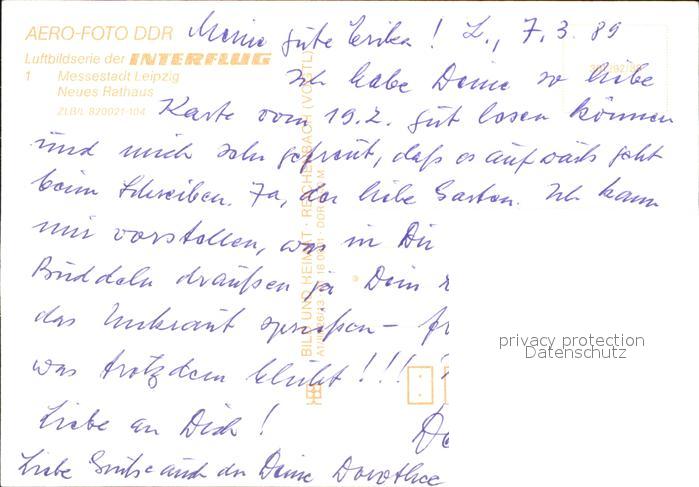 AERO-FOTO DDR
Luftbildserie der INTERFLUG
1 Messestadt Leipzig
Neues Rathaus
ZLB/L 820021-104
Meine gute Erika! L., 7.3.89
Ich habe Deine so liebe
Karte vom 19.2. gut lesen können
und mich sehr gefreut, daß es aufwärts geht
beim Schreiben. Ja, der liebe Garten. Ich kann
mir vorstellen, was in Dir
Buddeln draußen ja Dein
das Unkraut sprießen –
was trotzdem bleibt!!!
Liebe an Dich!
Liebe Grüße auch der Deine Dorothee
BILD UND HEIMAT · REICHENBACH (VOGTL)
privacy protection
Datenschutz